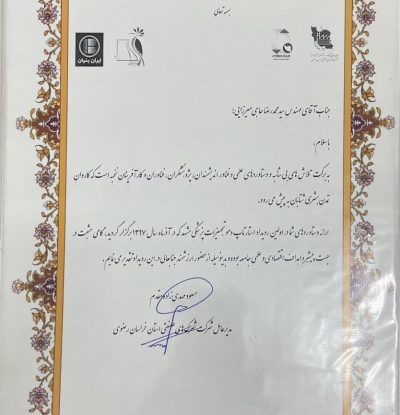 بسمه تعالی
ایران بنیان
جناب آقای مهندس سید محمدرضا حاجی میرزایی؛
با سلام؛
به برکت تلاش‌های بی شائبه و دستاوردهای علمی و فناور اندیشمندان، پژوهشگران، فناوران و کارآفرینان نخبه است که کاروان
تمدن بشری شتابان به پیش می رود.
ارائه دستاوردهای شما در اولین رویداد استارتاپ دمو تجهیزات پزشکی مشهد که در آذرماه سال ۱۳۹۷ برگزار گردید، گامی مثبت در
جهت پیشبرد اهداف اقتصادی و علمی جامعه بوده و بدینوسیله از حضور ارزشمند جنابعالی در این رویداد تقدیر می نمایم.
مسعود مهدی زاده مقدم
مدیرعامل شرکت شهرک‌های صنعتی استان خراسان رضوی